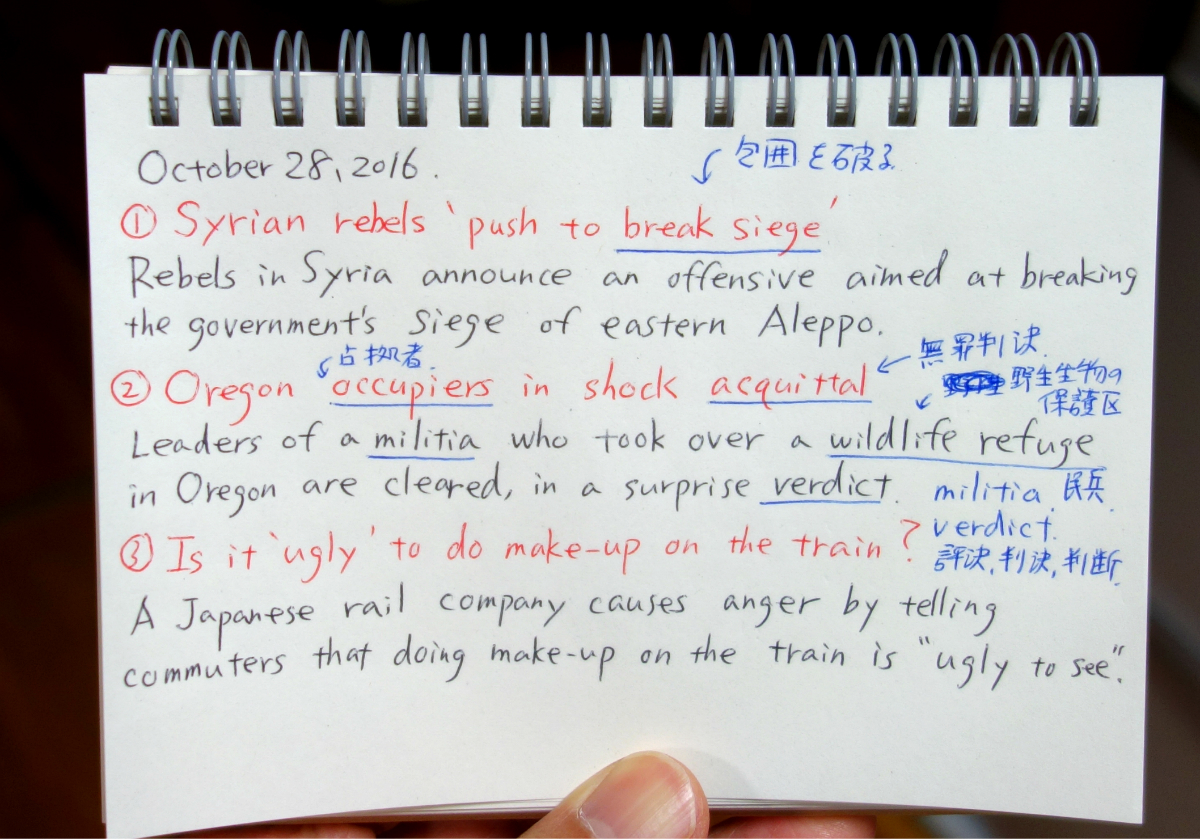 October 28, 2016.
包囲を破る
① Syrian rebels 'push to break siege'
Rebels in Syria announce an offensive aimed at breaking
the government's siege of eastern Aleppo.
占拠者
無罪判決
② Oregon occupiers in shock acquittal
野生生物の
保護区
Leaders of a militia who took over a wildlife refuge
in Oregon are cleared, in a surprise verdict.
militia 民兵
③ Is it 'ugly' to do make-up on the train?
verdict.
評決, 判決, 判断
A Japanese rail company causes anger by telling
commuters that doing make-up on the train is "ugly to see".